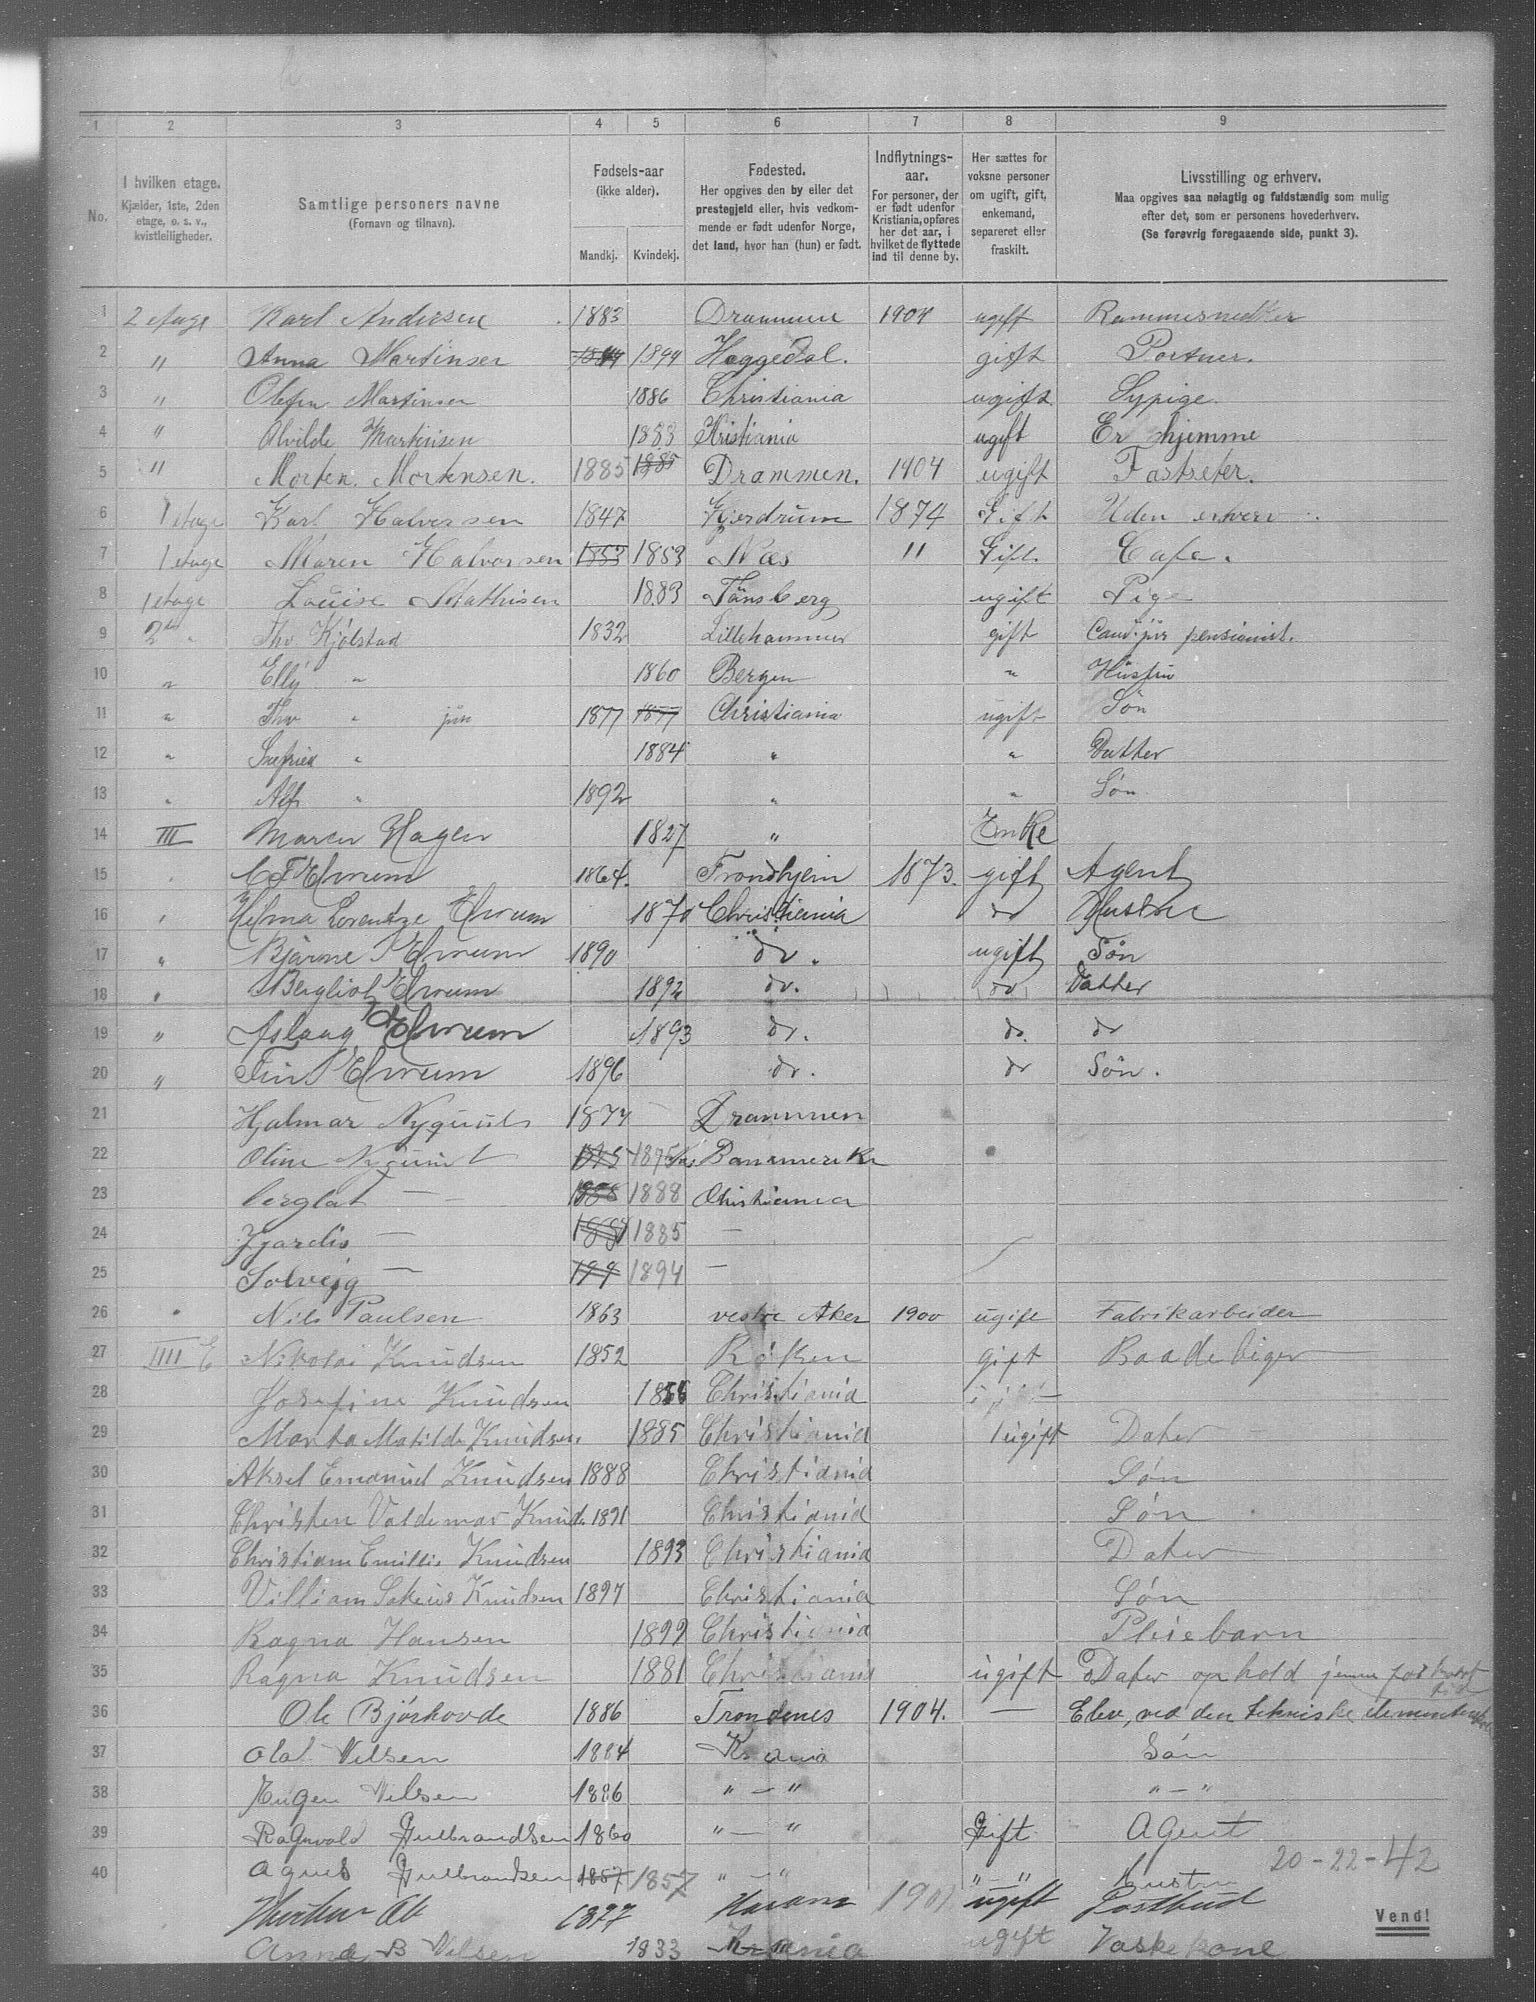 1 2 3 4 5 6 7 8 9
No.
I hvilken etage.
Kjælder, 1ste, 2den
etage, o. s. v.,
kvistleiligheder.
Samtlige personers navne
(Fornavn og tilnavn).
Fødsels-aar
(ikke alder).
Mandkj. Kvindekj.
Fødested.
Her opgives den by eller det
prestegjeld eller, hvis vedkom-
mende er født udenfor Norge,
det land, hvor han (hun) er født.
Indflytnings-
aar.
For personer, der
er født udenfor
Kristiania, opføres
her det aar, i
hvilket de flyttede
ind til denne by.
Her sættes for
voksne personer
om ugift, gift,
enkemand,
separeret eller
fraskilt.
Livsstilling og erhverv.
Maa opgives saa nøiagtig og fuldstændig som mulig
efter det, som er personens hovederhverv.
(Se forøvrig foregaaende side, punkt 3).
1 2 etage Karl Andersen 1883 Drammen 1904 ugift Rammesnedker
2 " Anna Martinsen 1844 Haggedal. gift Portner.
3 " Martinsen 1886 Christiania ugift Sypige.
4 " Alvilde Martinsen 1883 Kristiania ugift Er hjemme
5 " Morten Mortensen. 1885 1885 Drammen. 1904 ugift
6 1 etage Karl Halvorsen 1847 Gjerdrum 1874 Gift Uden erhverv
7 1 etage Maren Halvorsen 1853 1853 Næs " Gift. Cafe.
8 1 etage Louise Mathisen 1883 Tønsberg ugift Pige
9 2den " Thv Kjölstad 1832 Lillehammer gift pensionist.
10 " Elly " 1860 Bergen " Hustru
11 " Thv " jun 1877 1877 Christiania ugift Søn
12 " " 1884 " " Datter
13 " Alf " 1892 " " Søn
14 III Maren Hagen 1827 " Enke
15 " 1864. Trondhjem 1873. gift Agent
16 " Helma Lorentze 1870 Christiania do Hustru
17 " Bjarne 1890 do. ugift Søn
18 " Bergliot 1892 do. do Datter
19 " Aslaug 1893 do. do. do
20 " Fin 1896 do. do Søn.
21 Hjalmar Nyquist 1877 Drammen
22 Oline Nyquist 1875 1875
23 berglat — 1888 1888 Christiania
24 Hjardis — 1885 —
25 Solveig — 1894 —
26 " Nils Paulsen 1863 vestre Aker 1900 ugift Fabrikarbeider
27 IIII E Nikolai Knudsen 1852 Røken gift Baadebiger
28 Josefine Knudsen Christiania gift
29 Marta Matilde Knudsen. 1885 Christiania ugift Dater
30 Aksel Emanuel Knudsen 1888 Christiania Søn
31 Christen Valdemar Knud. 1891 Christiania Søn
32 Christiane Emilie Knudsen 1893 Christiania Dater
33 Villiam Knudsen 1897 Christiania Søn
34 Ragna Hansen 1899 Christiania Pleiebarn
35 Ragna Knudsen 1881 Christiania ugift Dater ophold
36 Ole Bjørkovde 1886 Trondenes 1904. — Elev, ved den tekniske
37 Olaf Nilsen 1884 Krania Søn
38 Eugen Nilsen 1886 " — " " — "
39 Ragnvald Gulbrandsen 1860 " — " Gift Agent
40 Agnes Gulbrandsen 1857 1857 " — " " — " Hustru
20-22-42
1877 ugift Postbud
Vend!
Anna B Nilsen 1833 Krania ugift Vaskekone